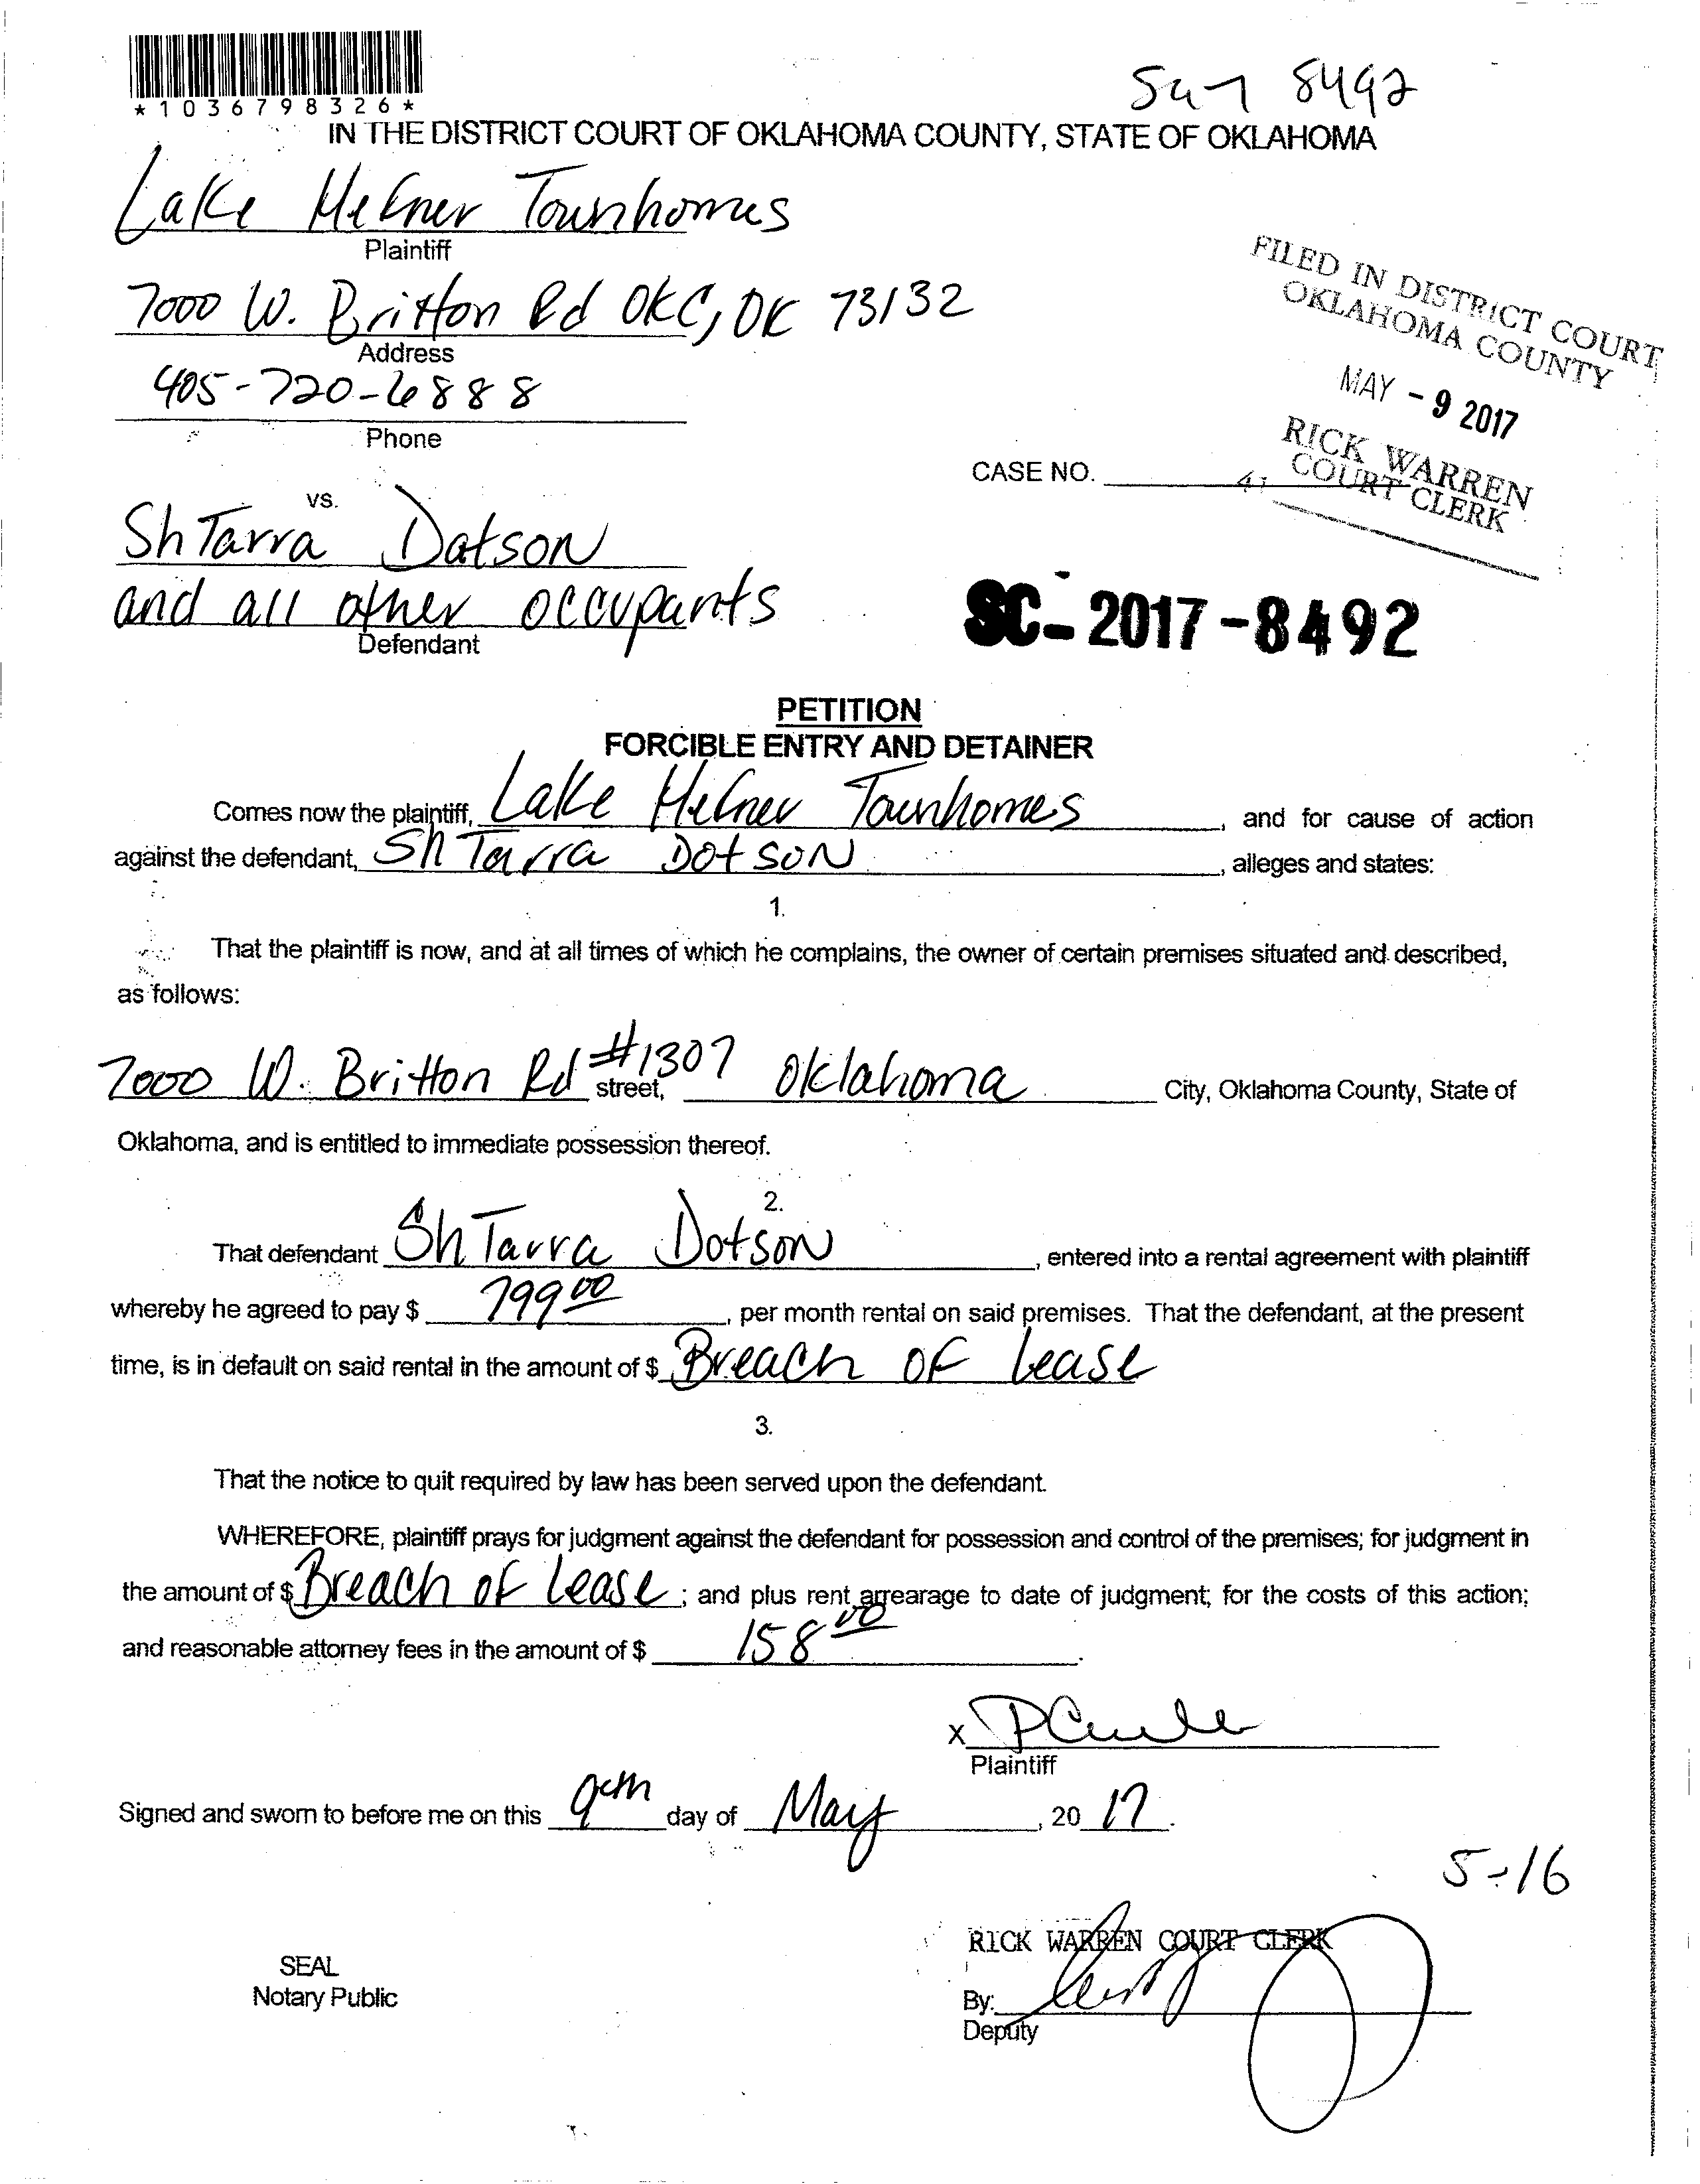 *1036798326*
8492
IN THE DISTRICT COURT OF OKLAHOMA COUNTY, STATE OF OKLAHOMA
Lake Hefner Townhomes
Plaintiff
7000 W. Britton Rd OKC, OK 73132
Address
405-720-6888
Phone
FILED IN DISTRICT COURT
OKLAHOMA COUNTY
MAY - 9 2017
RICK WARREN
COURT CLERK
41
CASE NO.
vs.
ShTarra Dotson
and all other occupants
Defendant
SC- 2017-8492
PETITION
FORCIBLE ENTRY AND DETAINER
Comes now the plaintiff, Lake Hefner Townhomes, and for cause of action
against the defendant, ShTarra Dotson, alleges and states:
1.
That the plaintiff is now, and at all times of which he complains, the owner of certain premises situated and described,
as follows:
7000 W. Britton Rd #1307 street, Oklahoma City, Oklahoma County, State of
Oklahoma, and is entitled to immediate possession thereof.
2.
That defendant ShTarra Dotson, entered into a rental agreement with plaintiff
whereby he agreed to pay $ 799 00, per month rental on said premises. That the defendant, at the present
time, is in default on said rental in the amount of $ Breach of Lease
3.
That the notice to quit required by law has been served upon the defendant.
WHEREFORE, plaintiff prays for judgment against the defendant for possession and control of the premises; for judgment in
the amount of $ Breach of Lease; and plus rent arrearage to date of judgment; for the costs of this action;
and reasonable attorney fees in the amount of $ 158 00.
X
Plaintiff
Signed and sworn to before me on this 9th day of May, 20 17.
5-16
RICK WARREN COURT CLERK
SEAL
Notary Public
By:
Deputy